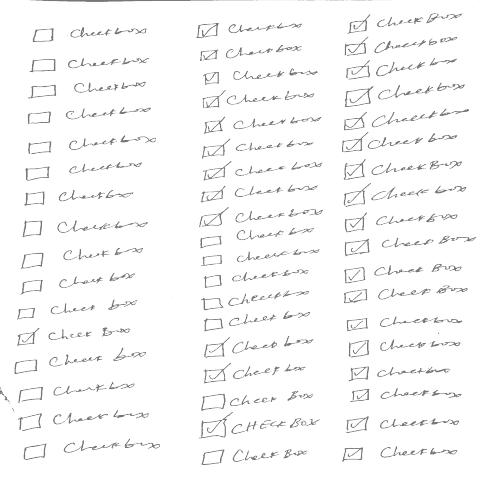 ☐ Checkbox
☐ Checkbox
☐ Checkbox
☐ Checkbox
☐ Checkbox
☐ Checkbox
☐ Checkbox
☐ Checkbox
☐ Check box
☐ Check box
☐ Check box
☑ Check Box
☐ Check box
☐ Checkbox
☐ Checkbox
☐ Checkbox
☑ Checkbox
☑ Checkbox
☑ Check box
☑ Check box
☑ Check box
☑ Check box
☑ Check box
☑ Check box
☑ Check box
☐ Check box
☐ Check box
☐ Check box
☐ Checkbox
☐ Check box
☑ Check box
☑ Check box
☐ Check Box
☑ CHECK BOX
☐ Check Box
☑ Check Box
☑ Check box
☑ Check box
☑ Check box
☑ Check box
☑ Check box
☑ Check Box
☑ Check box
☑ Check Box
☑ Check Box
☑ Check Box
☑ Check Box
☑ Checkbox
☑ Checkbox
☑ Checkbox
☑ Checkbox
☑ Checkbox
☑ Checkbox